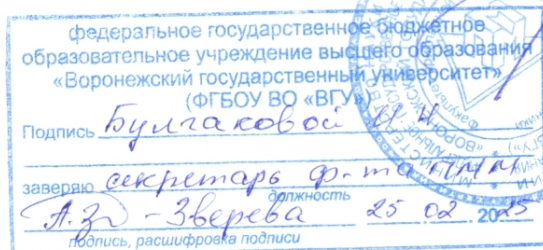 федеральное государственное бюджетное
образовательное учреждение высшего образования
«Воронежский государственный университет»
(ФГБОУ ВО «ВГУ»)
Подпись Булгаковой И Н
заверяю секретарь ф-та ПММ
должность
А.З - Зверева 25 02 2025
подпись, расшифровка подписи